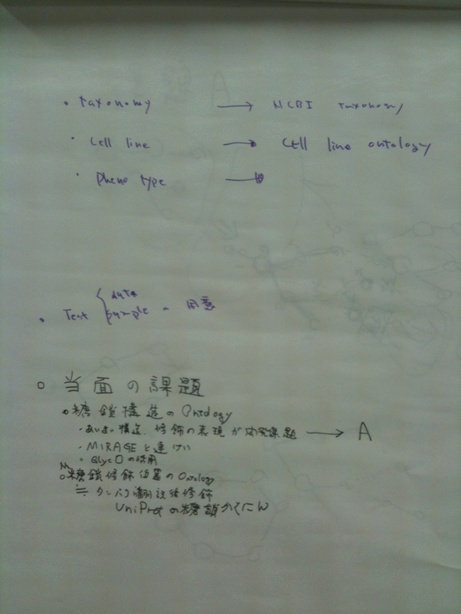 ・taxonomy → NCBI taxonomy
・cell line → cell line ontology
・pheno type →
・Test { data sample の 用意
○ 当面の課題
○糖鎖構造のOntology
・あいまい構造、修飾の表現が 課題 → A
・MIRAGEと連けい
・GlycOの
○糖鎖修飾位置のOntology
≒ タンパク翻訳後修飾
UniProtの糖鎖かくにん